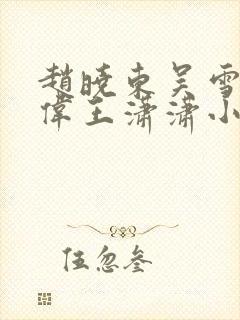 趙曉東吴雪
偉王潇潇小
伍忽叁